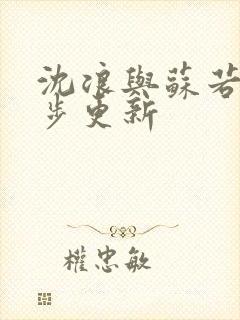 沈浪與蘇若
步更新
權忠敏